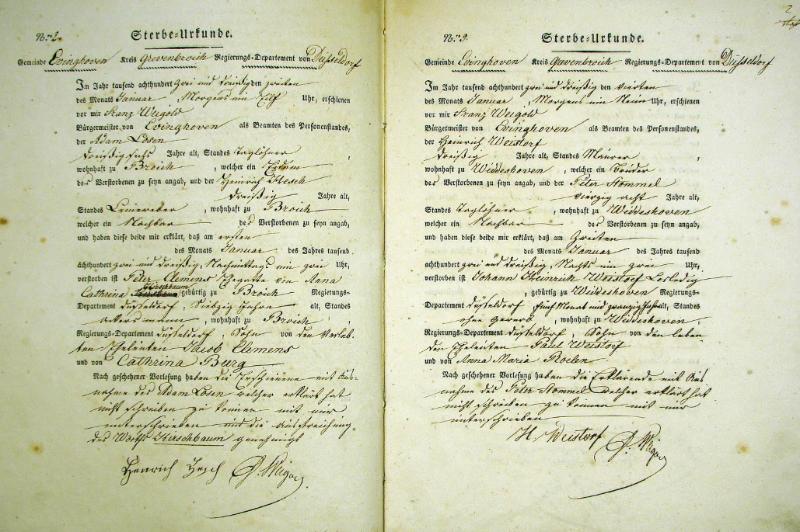 Nro. 2.
Sterbe-Urkunde.
Gemeinde Evinghoven Kreis Grevenbroich Regierungs-Departement von Düsseldorf
Im Jahr tausend achthundert zwei und dreißig den zweiten
des Monats Januar, Morgens um Elf Uhr, erschienen
vor mir Franz Weigold
Bürgermeister von Evinghoven als Beamten des Personenstandes,
der Adam Lösen
dreißig sechs Jahre alt, Standes Taglöhner,
wohnhaft zu Broich, welcher ein
des Verstorbenen zu seyn angab, und der Heinrich Hesch
dreißig Jahre alt,
Standes Leineweber, wohnhaft zu Broich
welcher ein Nachbar des Verstorbenen zu seyn angab,
und haben diese beide mir erklärt, daß am ersten
des Monats Januar des Jahres tausend
achthundert zwei und dreißig, Nachmittags um zwei Uhr,
verstorben ist Peter Clemens von Anna
Cathrina gebürtig zu Broich Regierungs-
Departement Düsseldorf, siebzig Jahre alt, Standes
Ackersmann, wohnhaft zu Broich
Regierungs-Departement Düsseldorf, Sohn von den verleb-
ten Eheleuten Jacob Clemens
und von Cathrina Burg
Nach geschehener Vorlesung haben die Erschienene mit Aus-
nahme des Adam Lösen welcher erklärt hat
nicht schreiben zu können mit mir
unterschrieben und die Ausstreichung
des Worts Kirschbaum genehmigt
Henrich Hesch
Nro. 3.
2
Sterbe-Urkunde.
Gemeinde Evinghoven Kreis Grevenbroich Regierungs-Departement von Düsseldorf
Im Jahr tausend achthundert zwei und dreißig den vierten
des Monats Januar, Morgens um Neun Uhr, erschienen
vor mir Franz Weigold
Bürgermeister von Evinghoven als Beamten des Personenstandes,
der Heinrich Weistorf
dreißig Jahre alt, Standes Maurer,
wohnhaft zu Widdeshoven, welcher ein Bruder
des Verstorbenen zu seyn angab, und der Peter Stommel
vierzig acht Jahre alt,
Standes Taglöhner, wohnhaft zu Widdeshoven
welcher ein Nachbar des Verstorbenen zu seyn angab,
und haben diese beide mir erklärt, daß am Zweiten
des Monats Januar des Jahres tausend
achthundert zwei und dreißig, Nachts um zwei Uhr,
verstorben ist Johann Heinrich Weistorf Ledig
, gebürtig zu Widdeshoven Regierungs-
Departement Düsseldorf, fünf Monat und zwanzig Jahr alt, Standes
ohne Gewerb, wohnhaft zu Widdeshoven
Regierungs-Departement Düsseldorf, Sohn von den leben-
den Eheleuten Paul Weistorf
und von Anna Maria Roelen
Nach geschehener Vorlesung haben die Erklärende mit Aus-
nahme des Peter Stommel welcher erklärt hat
nicht schreiben zu können mit mir
unterschrieben
H. Weistorf